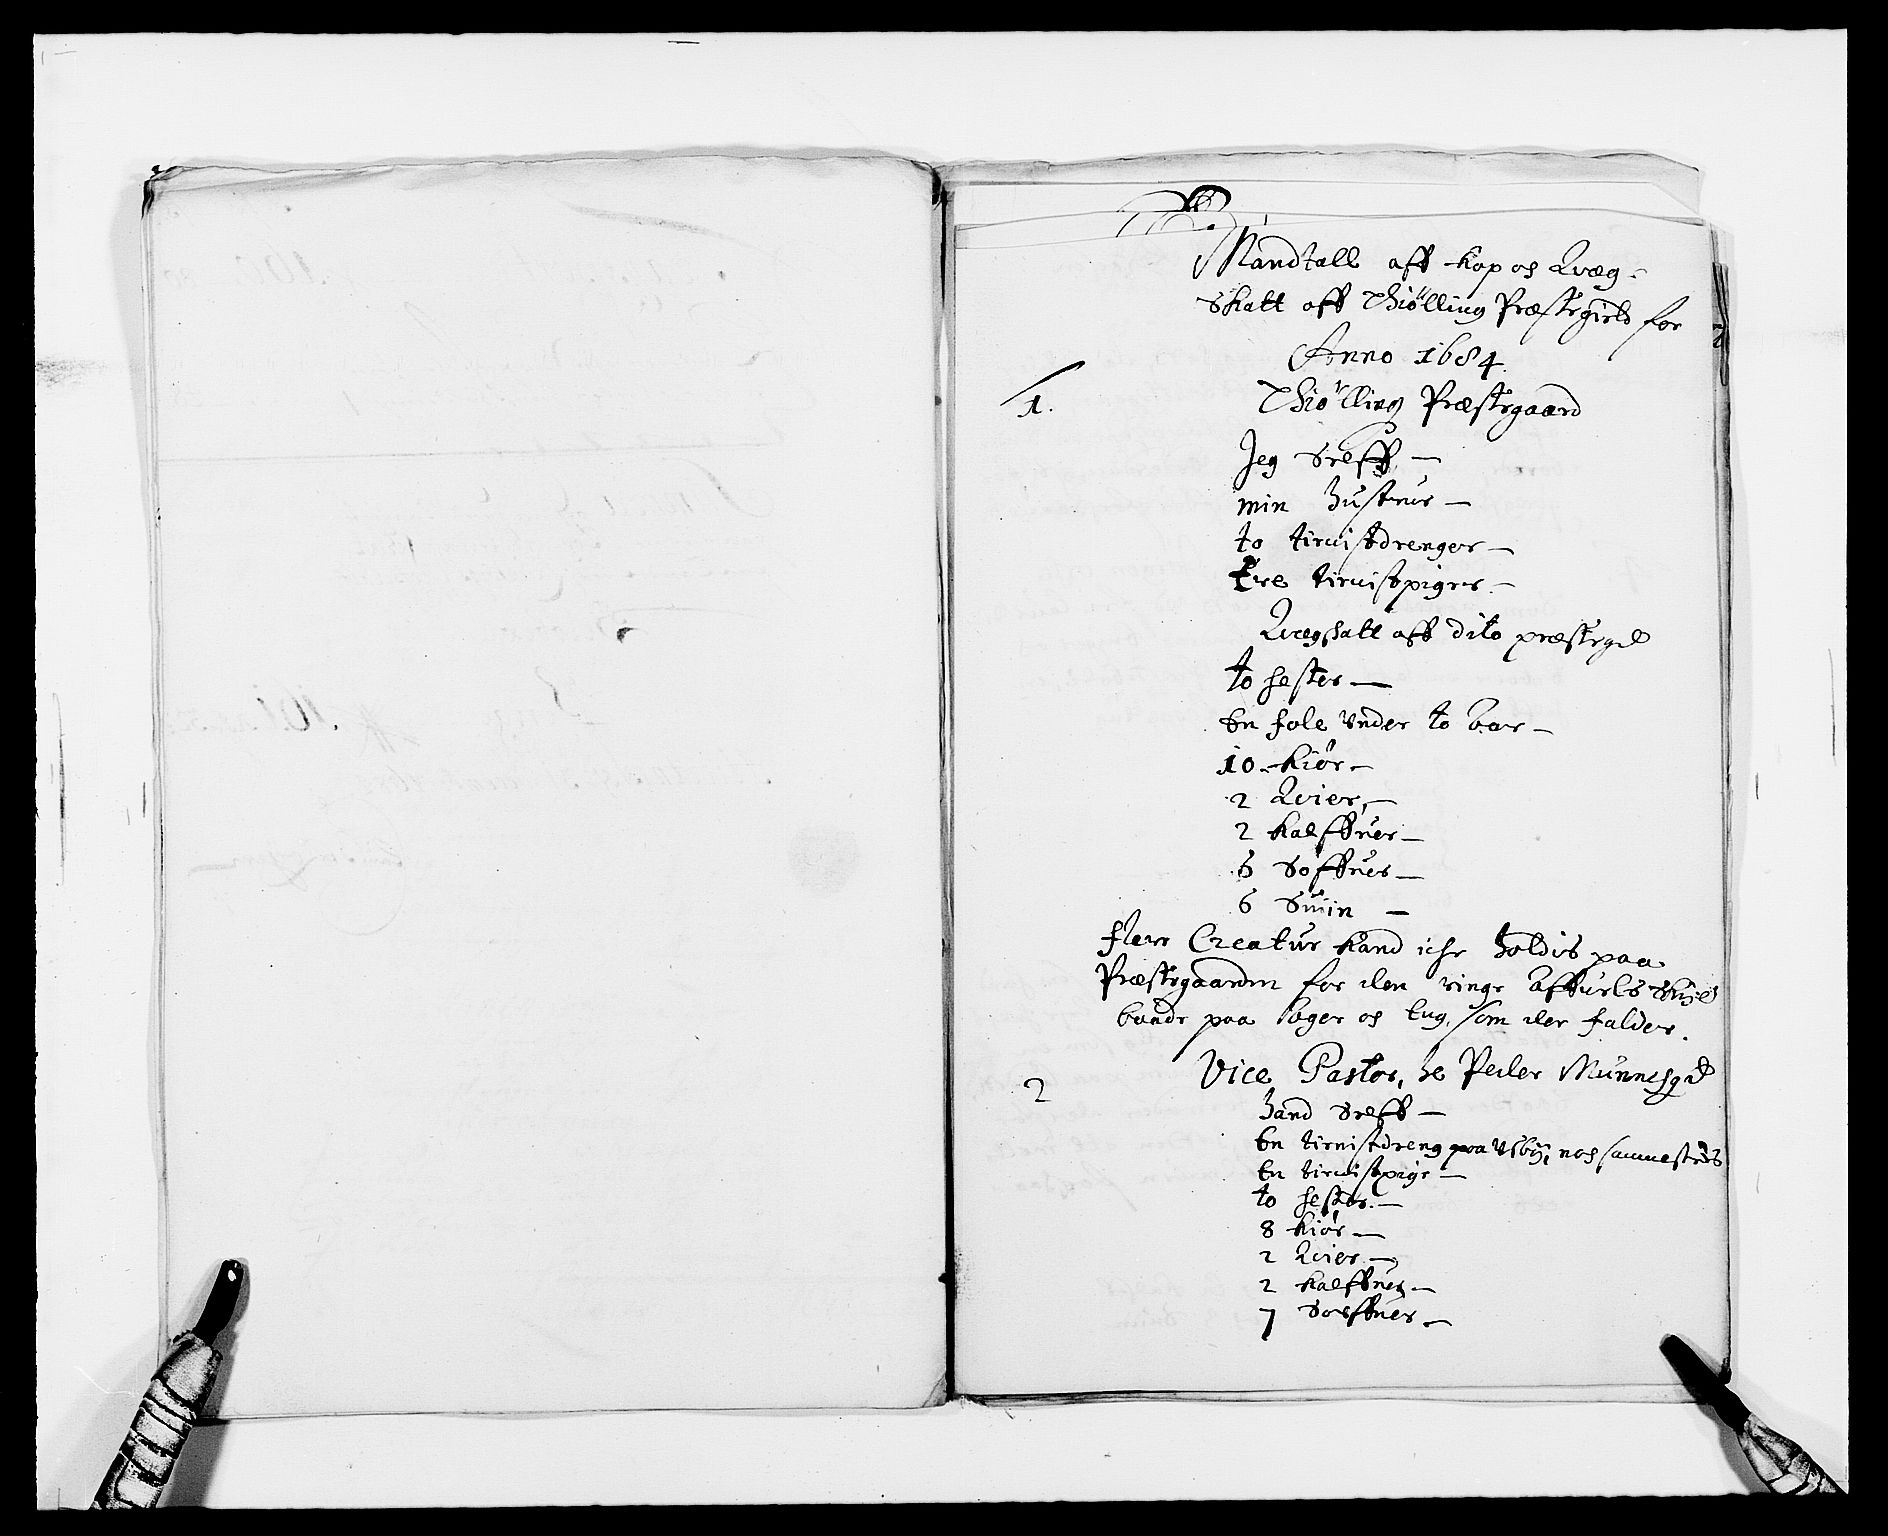 Mandtall aff kop og Qvæg-
skatt aff Thiølling Præstegield for
Anno 1684.
1.
Thiølling Præstegaard
Jeg Selff —
min Hustrue —
to tienistdrenger —
tre tienistpiger —
Qvægskatt aff dito præstegield
to hester —
En fole under to Aar —
10 kiør —
2 Qvier —
2 kalffuer —
6 Soffuer —
6 Suiin —
flere Creatur kand iche holdis paa
Præstegaarden for den ringe affuels skyld
baade paa ager og Eng, som der falder.
2
Vice Pastor, He Peder
Hand Selff —
En tienistdreng paa nok sammesteds
En tienistpige —
to hester —
8 kiør —
2 Qvier —
2 kalffuer —
7 Soeffuer —